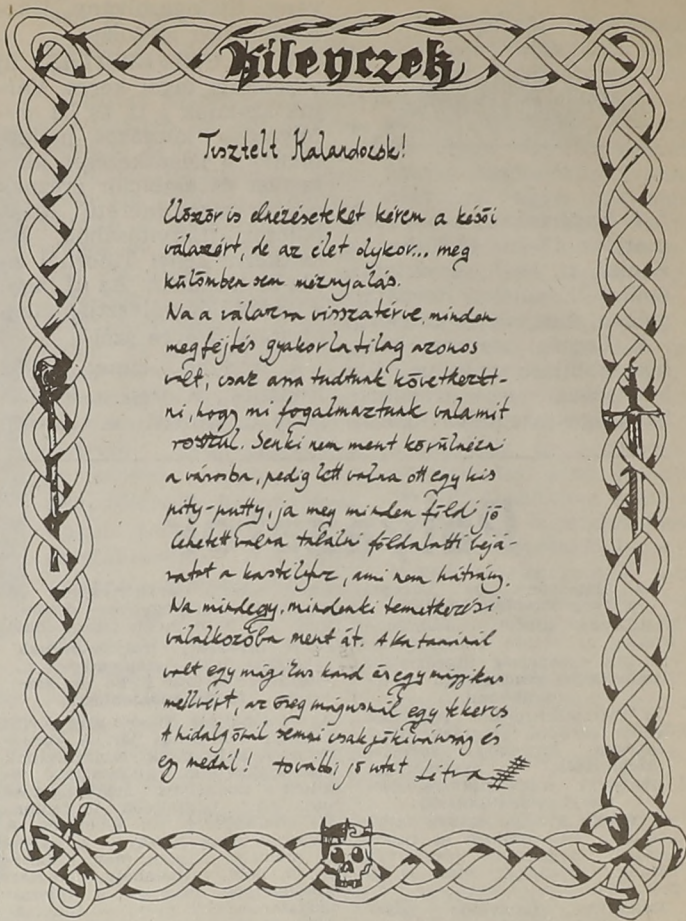 Kilenczek
Tisztelt Kalandozók!
Először is elnézéseteket kérem a késői
válaszért, de az élet olykor... meg
különben sem méznyalás.
Na a válaszra visszatérve, minden
megfejtés gyakorlatilag azonos
volt, csak arra tudtunk következtet-
ni, hogy mi fogalmaztunk valamit
rosszul. Senki nem ment körülnézni
a városba, pedig lett volna ott egy kis
pity-putty, ja meg minden földi jó
lehetett volna találni földalatti bejá-
ratot a kastélyhoz, ami nem hátrány.
Na mindegy, mindenki temetkezési
vállalkozóba ment át. A katonánál
volt egy mágikus kard és egy mágikus
mellvért, az öreg mágusnál egy tekercs
A hidalgónál semmi csak jókívánság és
egy medál! további jó utat Létra